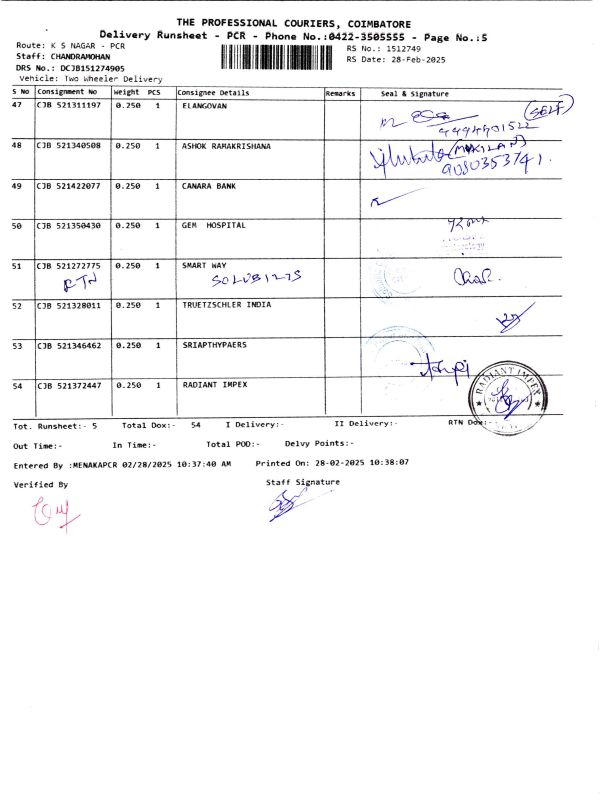 THE PROFESSIONAL COURIERS, COIMBATORE
Delivery Runsheet - PCR - Phone No.:0422-3505555 - Page No.:5
Route: K S NAGAR - PCR
RS No.: 1512749
Staff: CHANDRAMOHAN
RS Date: 28-Feb-2025
DRS No.: DCJB151274905
Vehicle: Two Wheeler Delivery
S No Consignment No Weight PCS Consignee Details Remarks Seal & Signature
47 CJB 521311197 0.250 1 ELANGOVAN
(SELF)
9494901522
48 CJB 521340508 0.250 1 ASHOK RAMAKRISHANA
(MUKILAN)
9080353741.
49 CJB 521422077 0.250 1 CANARA BANK
50 CJB 521350430 0.250 1 GEM HOSPITAL
51 CJB 521272775 0.250 1 SMART WAY
RTN SOLUBILIS
52 CJB 521328011 0.250 1 TRUETZSCHLER INDIA
53 CJB 521346462 0.250 1 SRIAPTHYPAERS
54 CJB 521372447 0.250 1 RADIANT IMPEX
RADIANT IMPEX
Tot. Runsheet:- 5 Total Dox:- 54 I Delivery:- II Delivery:- RTN Dox:-
Out Time:- In Time:- Total POD:- Delvy Points:-
Entered By :MENAKAPCR 02/28/2025 10:37:40 AM Printed On: 28-02-2025 10:38:07
Verified By Staff Signature